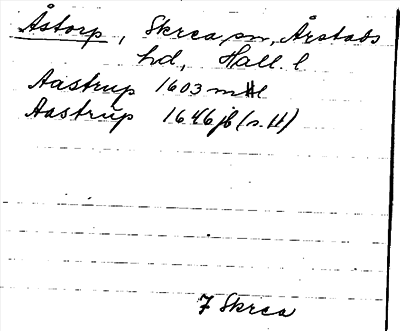 Åstorp, Skrea sn, Årstads
hd, Hall. l
Aastrup 1603 mtl
Aastrup 1646 jb (s. 11)
7 Skrea